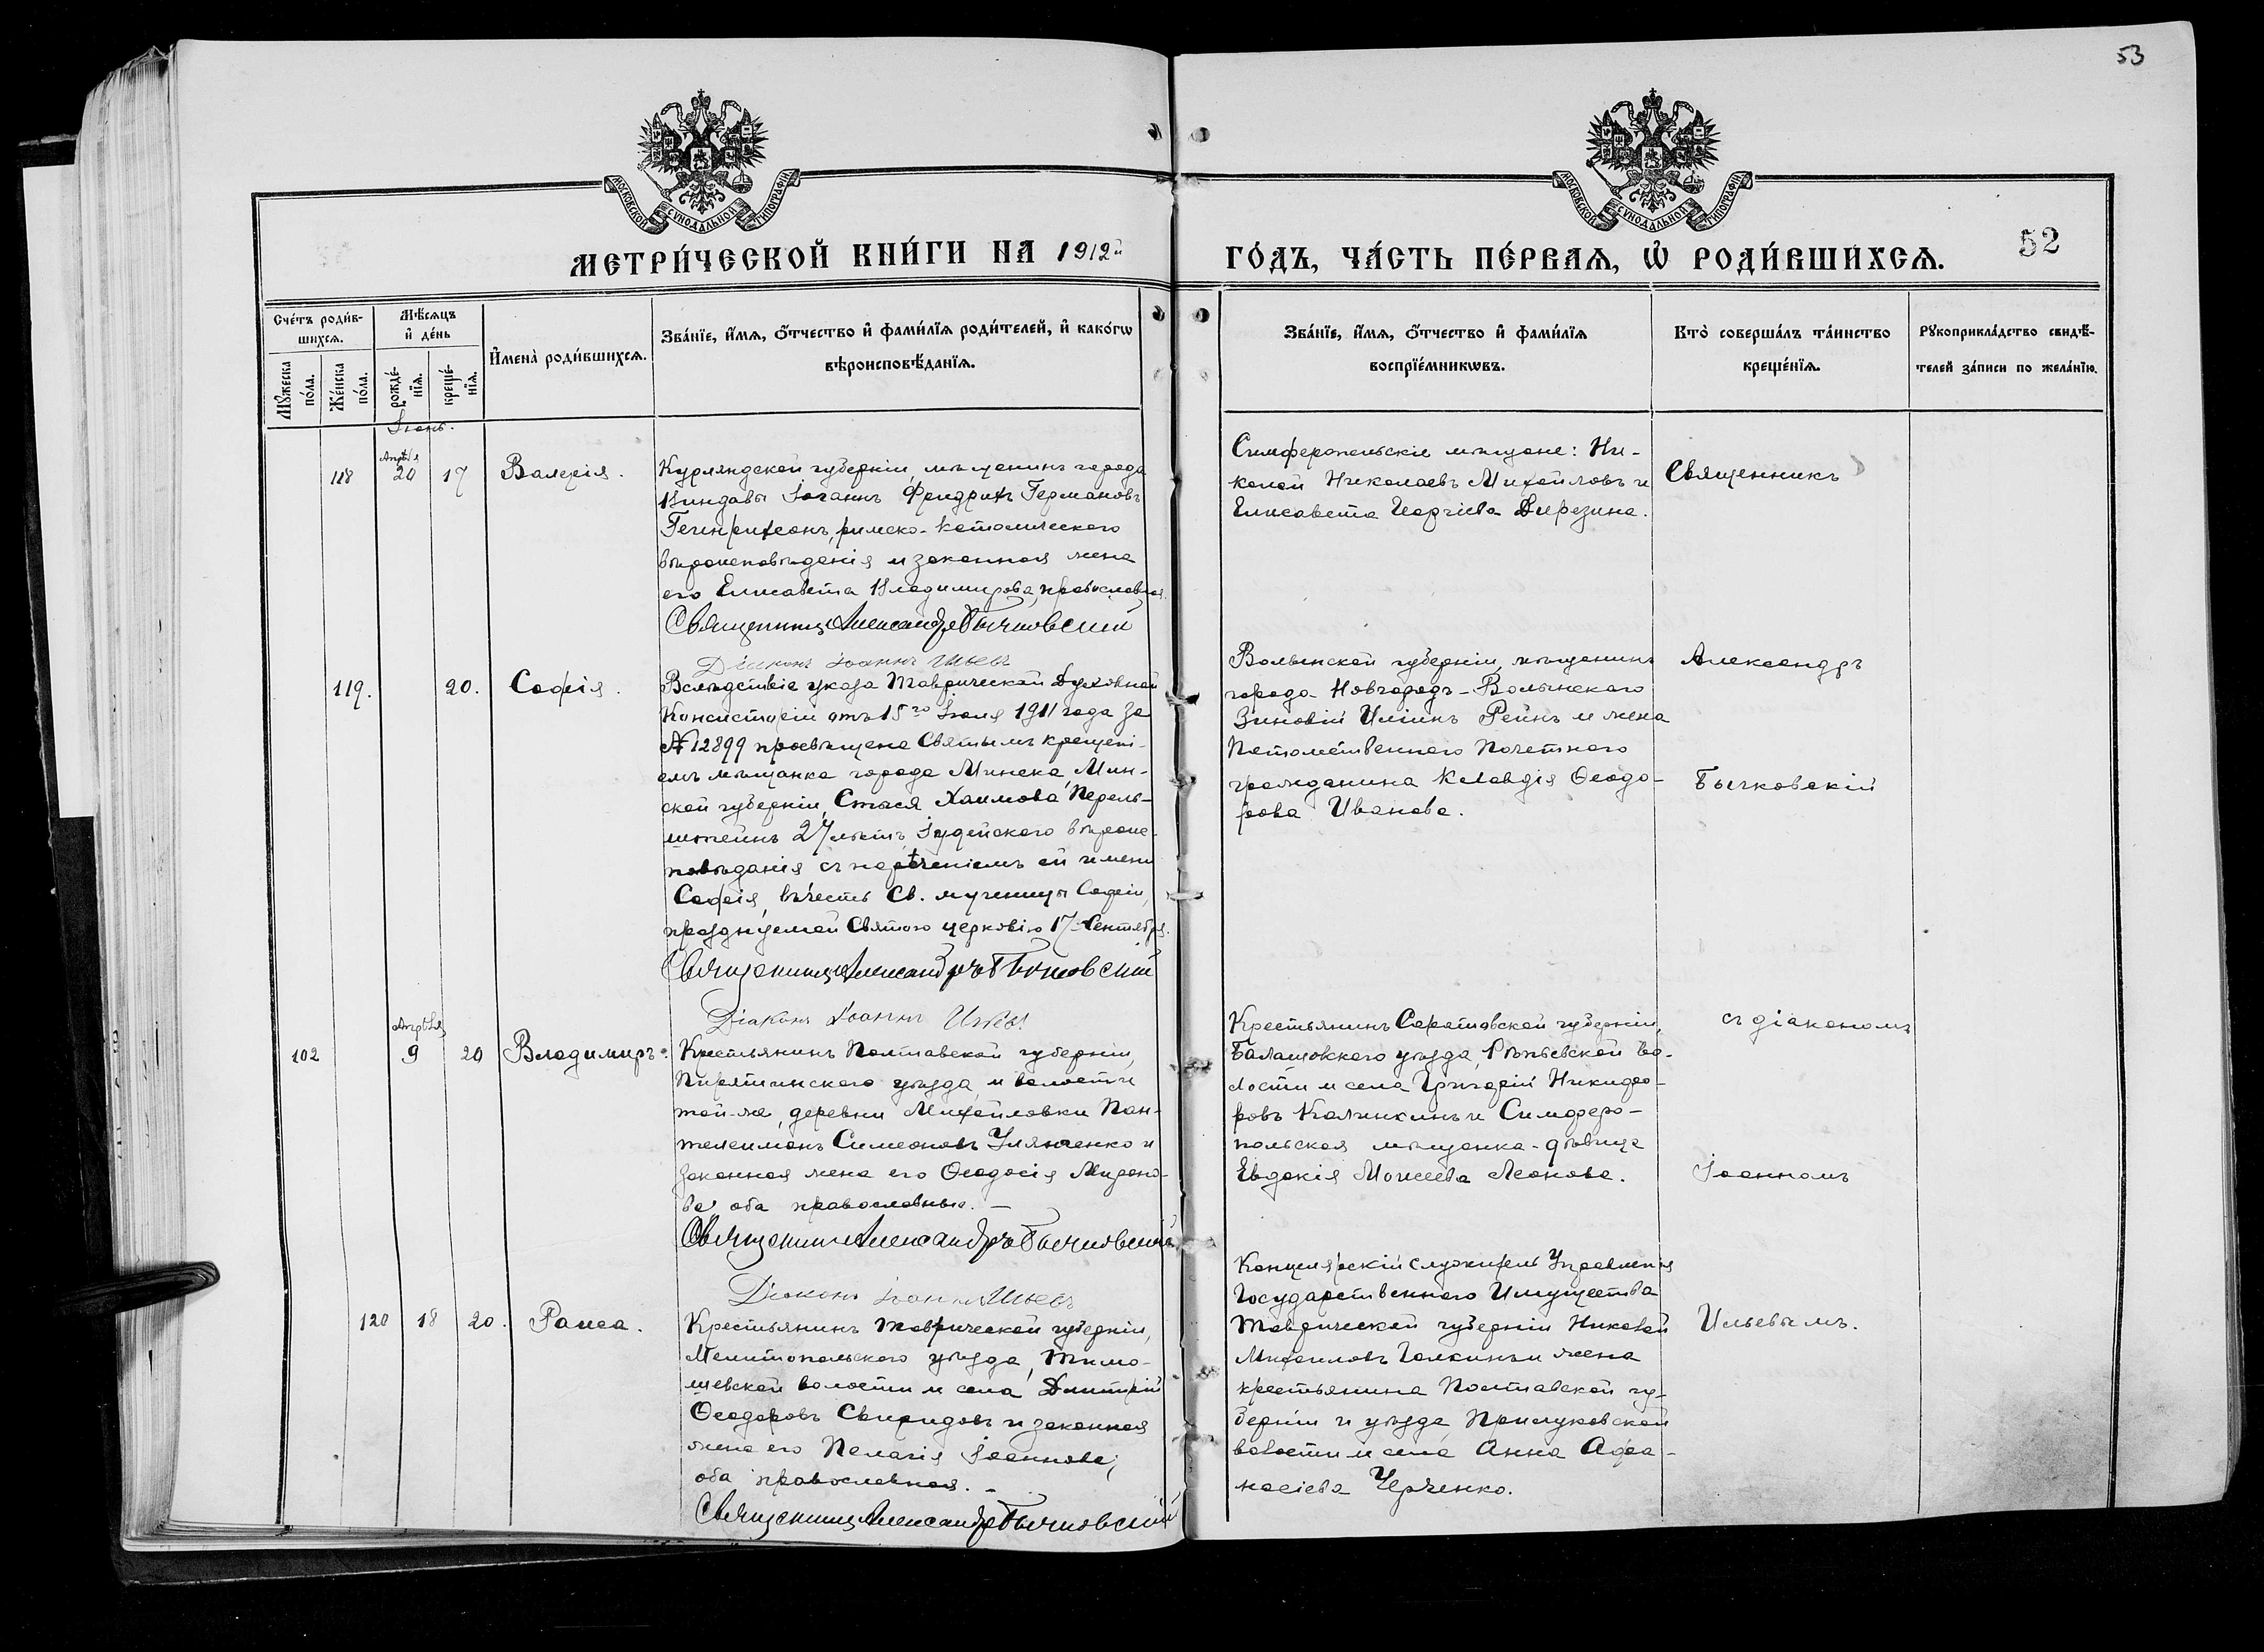 53
МОСКОВСКОЙ СѴНОДАЛЬНОЙ ТИПОГРАФІИ
МОСКОВСКОЙ СѴНОДАЛЬНОЙ ТИПОГРАФІИ
МЕТРИ́ЧЕСКОЙ КНИ́ГИ НА 1912й
ГО́ДЪ, ЧА́СТЬ ПЕ́РВАѦ, Ѡ҆ РОДИ́ВШИХСѦ.
52
Сче́тъ роди́в-
шихсѧ.
Мꙋ́жеска по́ла.
Же́нска по́ла.
Мѣ́сѧцъ
и҆ де́нь
рожде́-нїѧ.
креще́-нїѧ.
И҆мена̀ роди́вшихсѧ.
Зва́нїе, и҆́мѧ, о҆́тчество и҆ фами́лїѧ роди́телей, и҆ како́гѡ
вѣроисповѣ́данїѧ.
Зва́нїе, и҆́мѧ, о҆́тчество и҆ фами́лїѧ
воспрїе́мникѡвъ.
Кто̀ соверша́лъ та́инство
креще́нїѧ.
Рꙋкоприкла́дство свидѣ́-
телей за́писи по жела́нїю.
Іюнь.
118
Апрѣля
20
17
Валерія.
Курляндской губерніи, мѣщанинъ города
Виндавы Іоганнъ Фридрихъ Германовъ
Гейнрихсонъ, римско-католическаго
вѣроисповѣданія и законная жена
его Елисавета Владимирова, православная.
Священникъ Александръ Бычковскій
Діаконъ Іоаннъ Ильевъ
Симферопольскіе мѣщане: Ни-
колай Николаевъ Михайловъ и
Елисавета Георгіева Дирезина.
Священникъ
119.
20.
Софія.
Вслѣдствіе указа Таврической Духовной
Консисторіи отъ 15го Іюля 1911 года за
№ 12899 просвѣщена Святымъ крещені-
емъ мѣщанка города Минска, Мин-
ской губерніи, Стыся Хаимова Перель-
штейнъ 27 лѣтъ, Іудейского вѣроис-
повѣданія съ нареченіемъ ей имени
Софія, въ честь Св. мученицы Софіи,
празднуемой Святою церковію 17 Сентября.
Священникъ Александръ Бычковскій
Діаконъ Іоаннъ Ильевъ
Волынской губерніи, мѣщанинъ
города Новградъ-Волынскаго
Зиновій Иліинъ Рейнъ и жена
Потомственнаго Почетнаго
гражданина Клавдія Ѳеодо-
рова Иванова.
Александръ
Бычковскій
102
Апрѣля
9
20
Владимиръ.
Крестьянинъ Полтавской губерніи,
Пирятинскаго уѣзда, и волости
той-же, деревни Михайловки Пан-
телеимонъ Симеоновъ Ульянченко и
законная жена его Ѳеодосія Мироно-
ва, оба православные.
Священникъ Александръ Бычковскій
Діаконъ Іоаннъ Ильевъ
Крестьянинъ Саратовской губерніи,
Балашовскаго уѣзда, Рѣпьевской во-
лости и села Григорій Никифо-
ровъ Калинкинъ и Симферо-
польская мѣщанка-дѣвица
Евдокія Моисеева Леонова.
съ діакономъ
Іоанномъ
120
18
20.
Раиса.
Крестьянинъ Таврической губерніи,
Мелитопольскаго уѣзда, Тимо-
шевской волости и села Димитрій
Ѳеодоровъ Свиридовъ и законная
жена его Пелагія Іоаннова,
оба православная.
Священникъ Александръ Бычковскій
Канцелярскій служитель Управленія
Государственнаго Имущества
Таврической губерніи Николай
Михаиловъ Галкинъ и жена
крестьянина Полтавской гу-
берніи и уѣзда Прилуковской
волости и села Анна Афа-
насіева Черченко.
Ильевымъ.